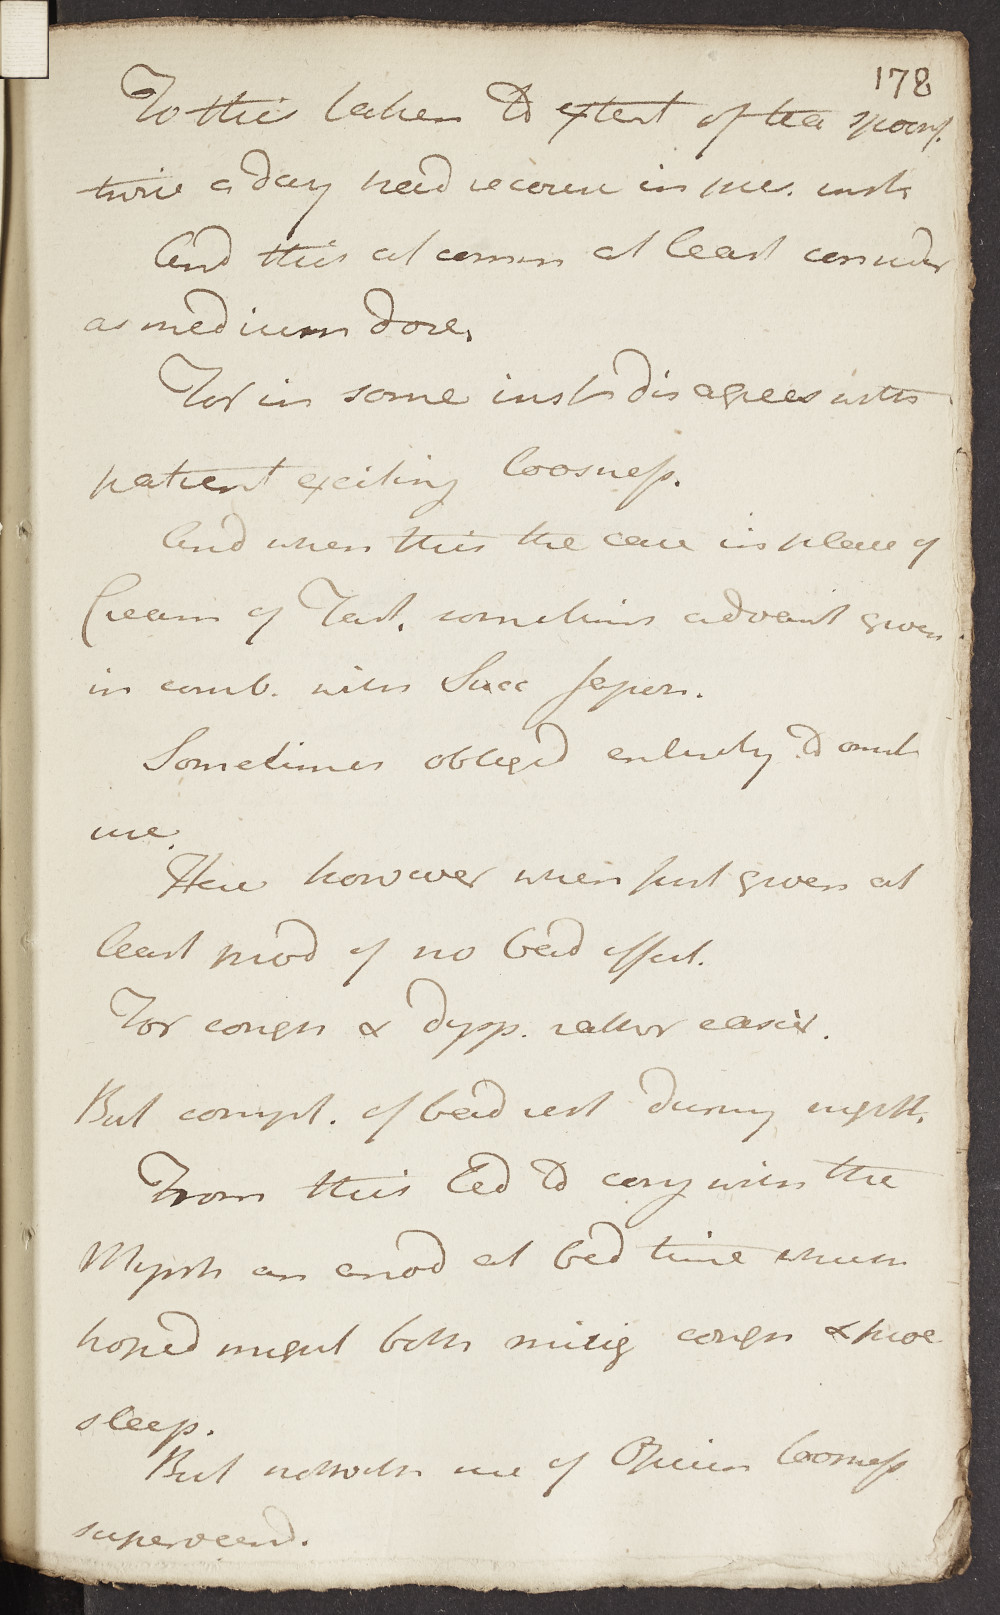 178
To this taken to extent of tea spoonf.
twice a day had recourse in pres. inst.
And this at comm at least consider
as medium dose.
For in some inst. disagrees with
patient exciting loosness.
And when this the case in place of
Cream of Tart. sometimes advant given
in comb. with Succ
Sometimes obliged entirely to omit
use.
Here however when first given at
least prod of no bad effect.
For cough & dysp. rather easier.
But compl. of bad rest during night.
From this led to conj with the
Myrrh an anod at bed time which
hoped might both mitig cough & proc
sleep.
But notwith use of Opium loosness
superveend.